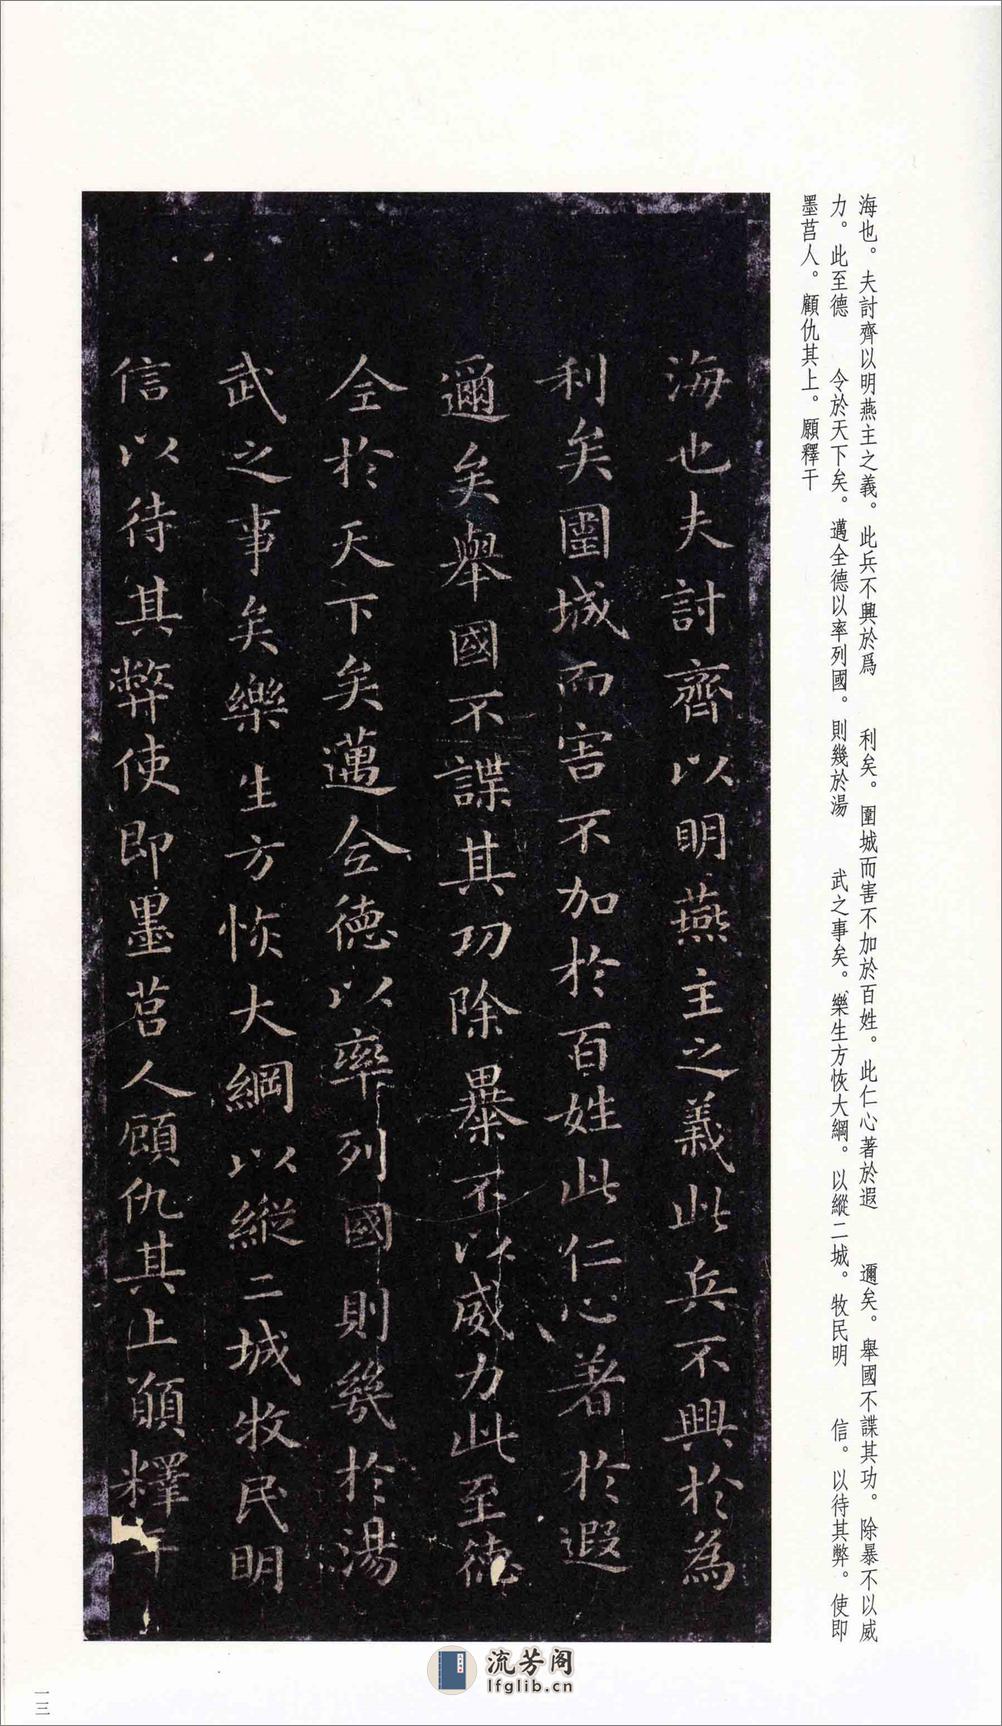 海也。夫討齊以明燕主之義。此兵不興於爲　利矣。圍城而害不加於百姓。此仁心著於遐　邇矣。舉國不謀其功。除暴不以威
力。此至德　令於天下矣。邁全德以率列國。則幾於湯　武之事矣。樂生方恢大綱。以縱二城。牧民明　信。以待其弊。使即
墨莒人。顧仇其上。願釋干
海也夫討齊以明燕主之義此兵不興於為
利矣圍城而害不加於百姓此仁心著於遐
邇矣舉國不謀其功除暴不以威力此至德
全於天下矣邁全德以率列國則幾於湯
武之事矣樂生方恢大綱以縱二城牧民明
信以待其弊使即墨莒人顧仇其上願釋干
流芳阁
lfglib.cn
一三